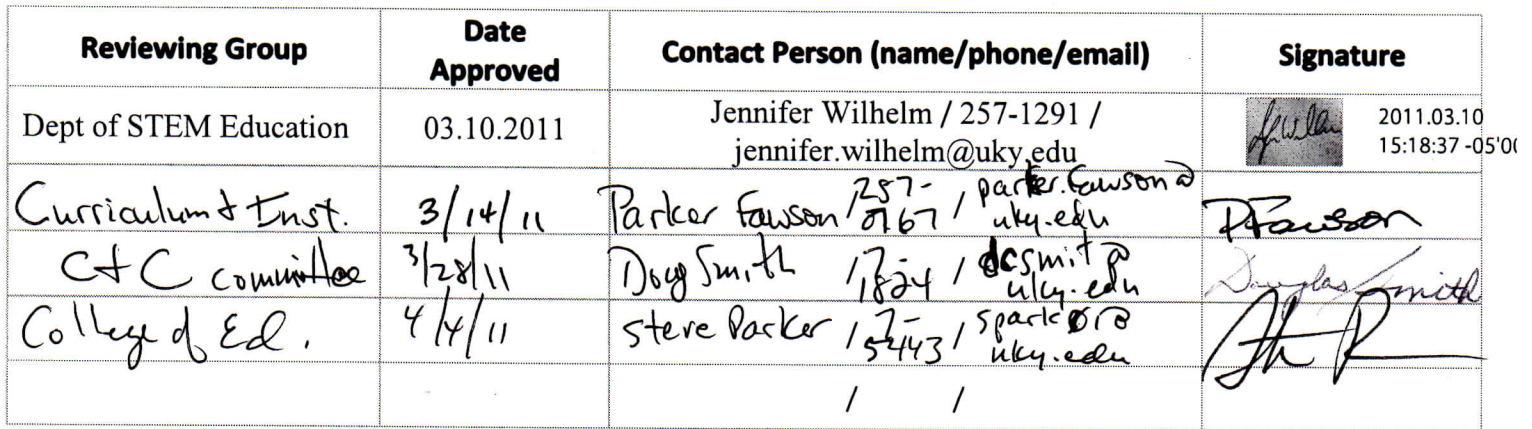 Reviewing Group Date Approved Contact Person (name/phone/email) Signature
Dept of STEM Education 03.10.2011 Jennifer Wilhelm / 257-1291 / jennifer.wilhelm@uky.edu 2011.03.10 15:18:37 -05'0
Curriculum & Inst. 3/14/11 Parker Fawson / 257-0767 / parker.fawson@uky.edu PFawson
C&C committee 3/28/11 Doug Smith / 7-1824 / dcsmit@uky.edu Douglas Smith
College of Ed. 4/4/11 Steve Parker / 7-5443 / uky.edu
/ /